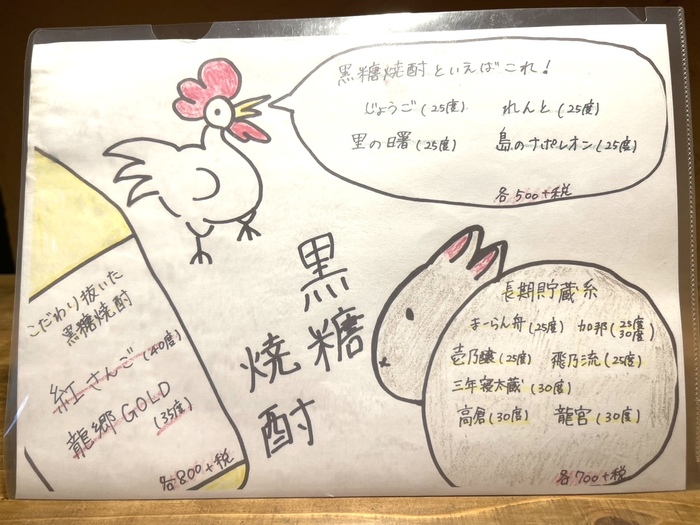 黒糖焼酎といえばこれ!
じょうご(25度) れんと(25度)
里の曙(25度) 島のナポレオン(25度)
各500+税
黒糖
焼酎
こだわり抜いた
黒糖焼酎
紅さんご(40度)
龍郷GOLD
(35度)
各800+税
長期貯蔵系
まーらん舟(25度) 加那(25度 30度)
壱乃醸(25度) 飛乃流(25度)
三年寝太蔵(30度)
高倉(30度) 龍宮(30度)
各700+税